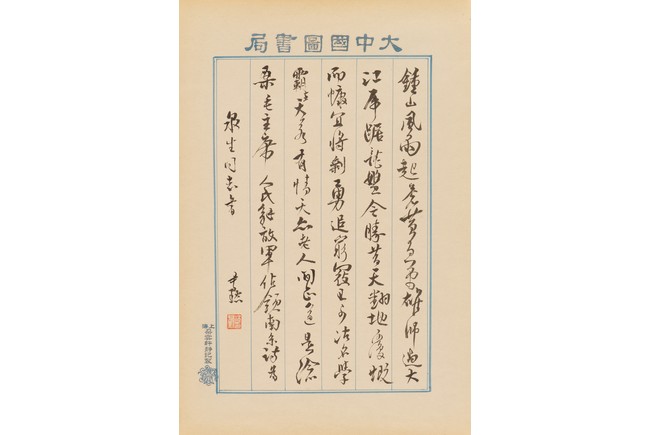 大中國圖書局
鍾山風雨起蒼黃百萬雄師過大
江虎踞龍盤今勝昔天翻地覆慨
而慷宜將剩勇追窮寇不可沽名學
霸王天若有情天亦老人間正道是滄
桑毛主席 人民解放軍佔領南京詩
泉生同志
尹默
上海